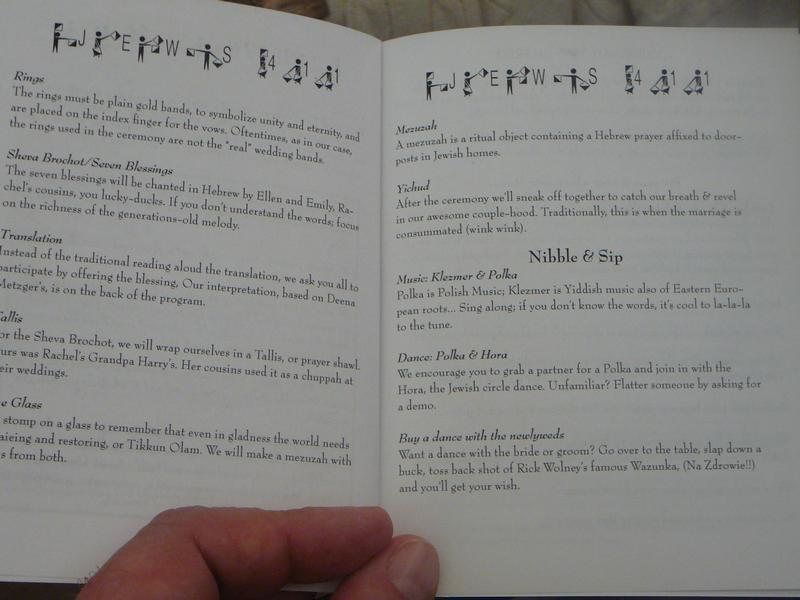 J E W S 4 1 1
Rings
The rings must be plain gold bands, to symbolize unity and eternity, and
are placed on the index finger for the vows. Oftentimes, as in our case,
the rings used in the ceremony are not the "real" wedding bands.
Sheva Brochot/Seven Blessings
The seven blessings will be chanted in Hebrew by Ellen and Emily, Ra-
chel's cousins, you lucky-ducks. If you don't understand the words; focus
on the richness of the generations-old melody.
Translation
Instead of the traditional reading aloud the translation, we ask you all to
participate by offering the blessing, Our interpretation, based on Deena
Metzger's, is on the back of the program.
Tallis
or the Sheva Brochot, we will wrap ourselves in a Tallis, or prayer shawl.
urs was Rachel's Grandpa Harry's. Her cousins used it as a chuppah at
eir weddings.
e Glass
stomp on a glass to remember that even in gladness the world needs
aieing and restoring, or Tikkun Olam. We will make a mezuzah with
s from both.
J E W S 4 1 1
Mezuzah
A mezuzah is a ritual object containing a Hebrew prayer affixed to door-
posts in Jewish homes.
Yichud
After the ceremony we'll sneak off together to catch our breath & revel
in our awesome couple-hood. Traditionally, this is when the marriage is
consummated (wink wink).
Nibble & Sip
Music: Klezmer & Polka
Polka is Polish Music; Klezmer is Yiddish music also of Eastern Euro-
pean roots... Sing along; if you don't know the words, it's cool to la-la-la
to the tune.
Dance: Polka & Hora
We encourage you to grab a partner for a Polka and join in with the
Hora, the Jewish circle dance. Unfamiliar? Flatter someone by asking for
a demo.
Buy a dance with the newlyweds
Want a dance with the bride or groom? Go over to the table, slap down a
buck, toss back shot of Rick Wolney's famous Wazunka, (Na Zdrowie!!)
and you'll get your wish.